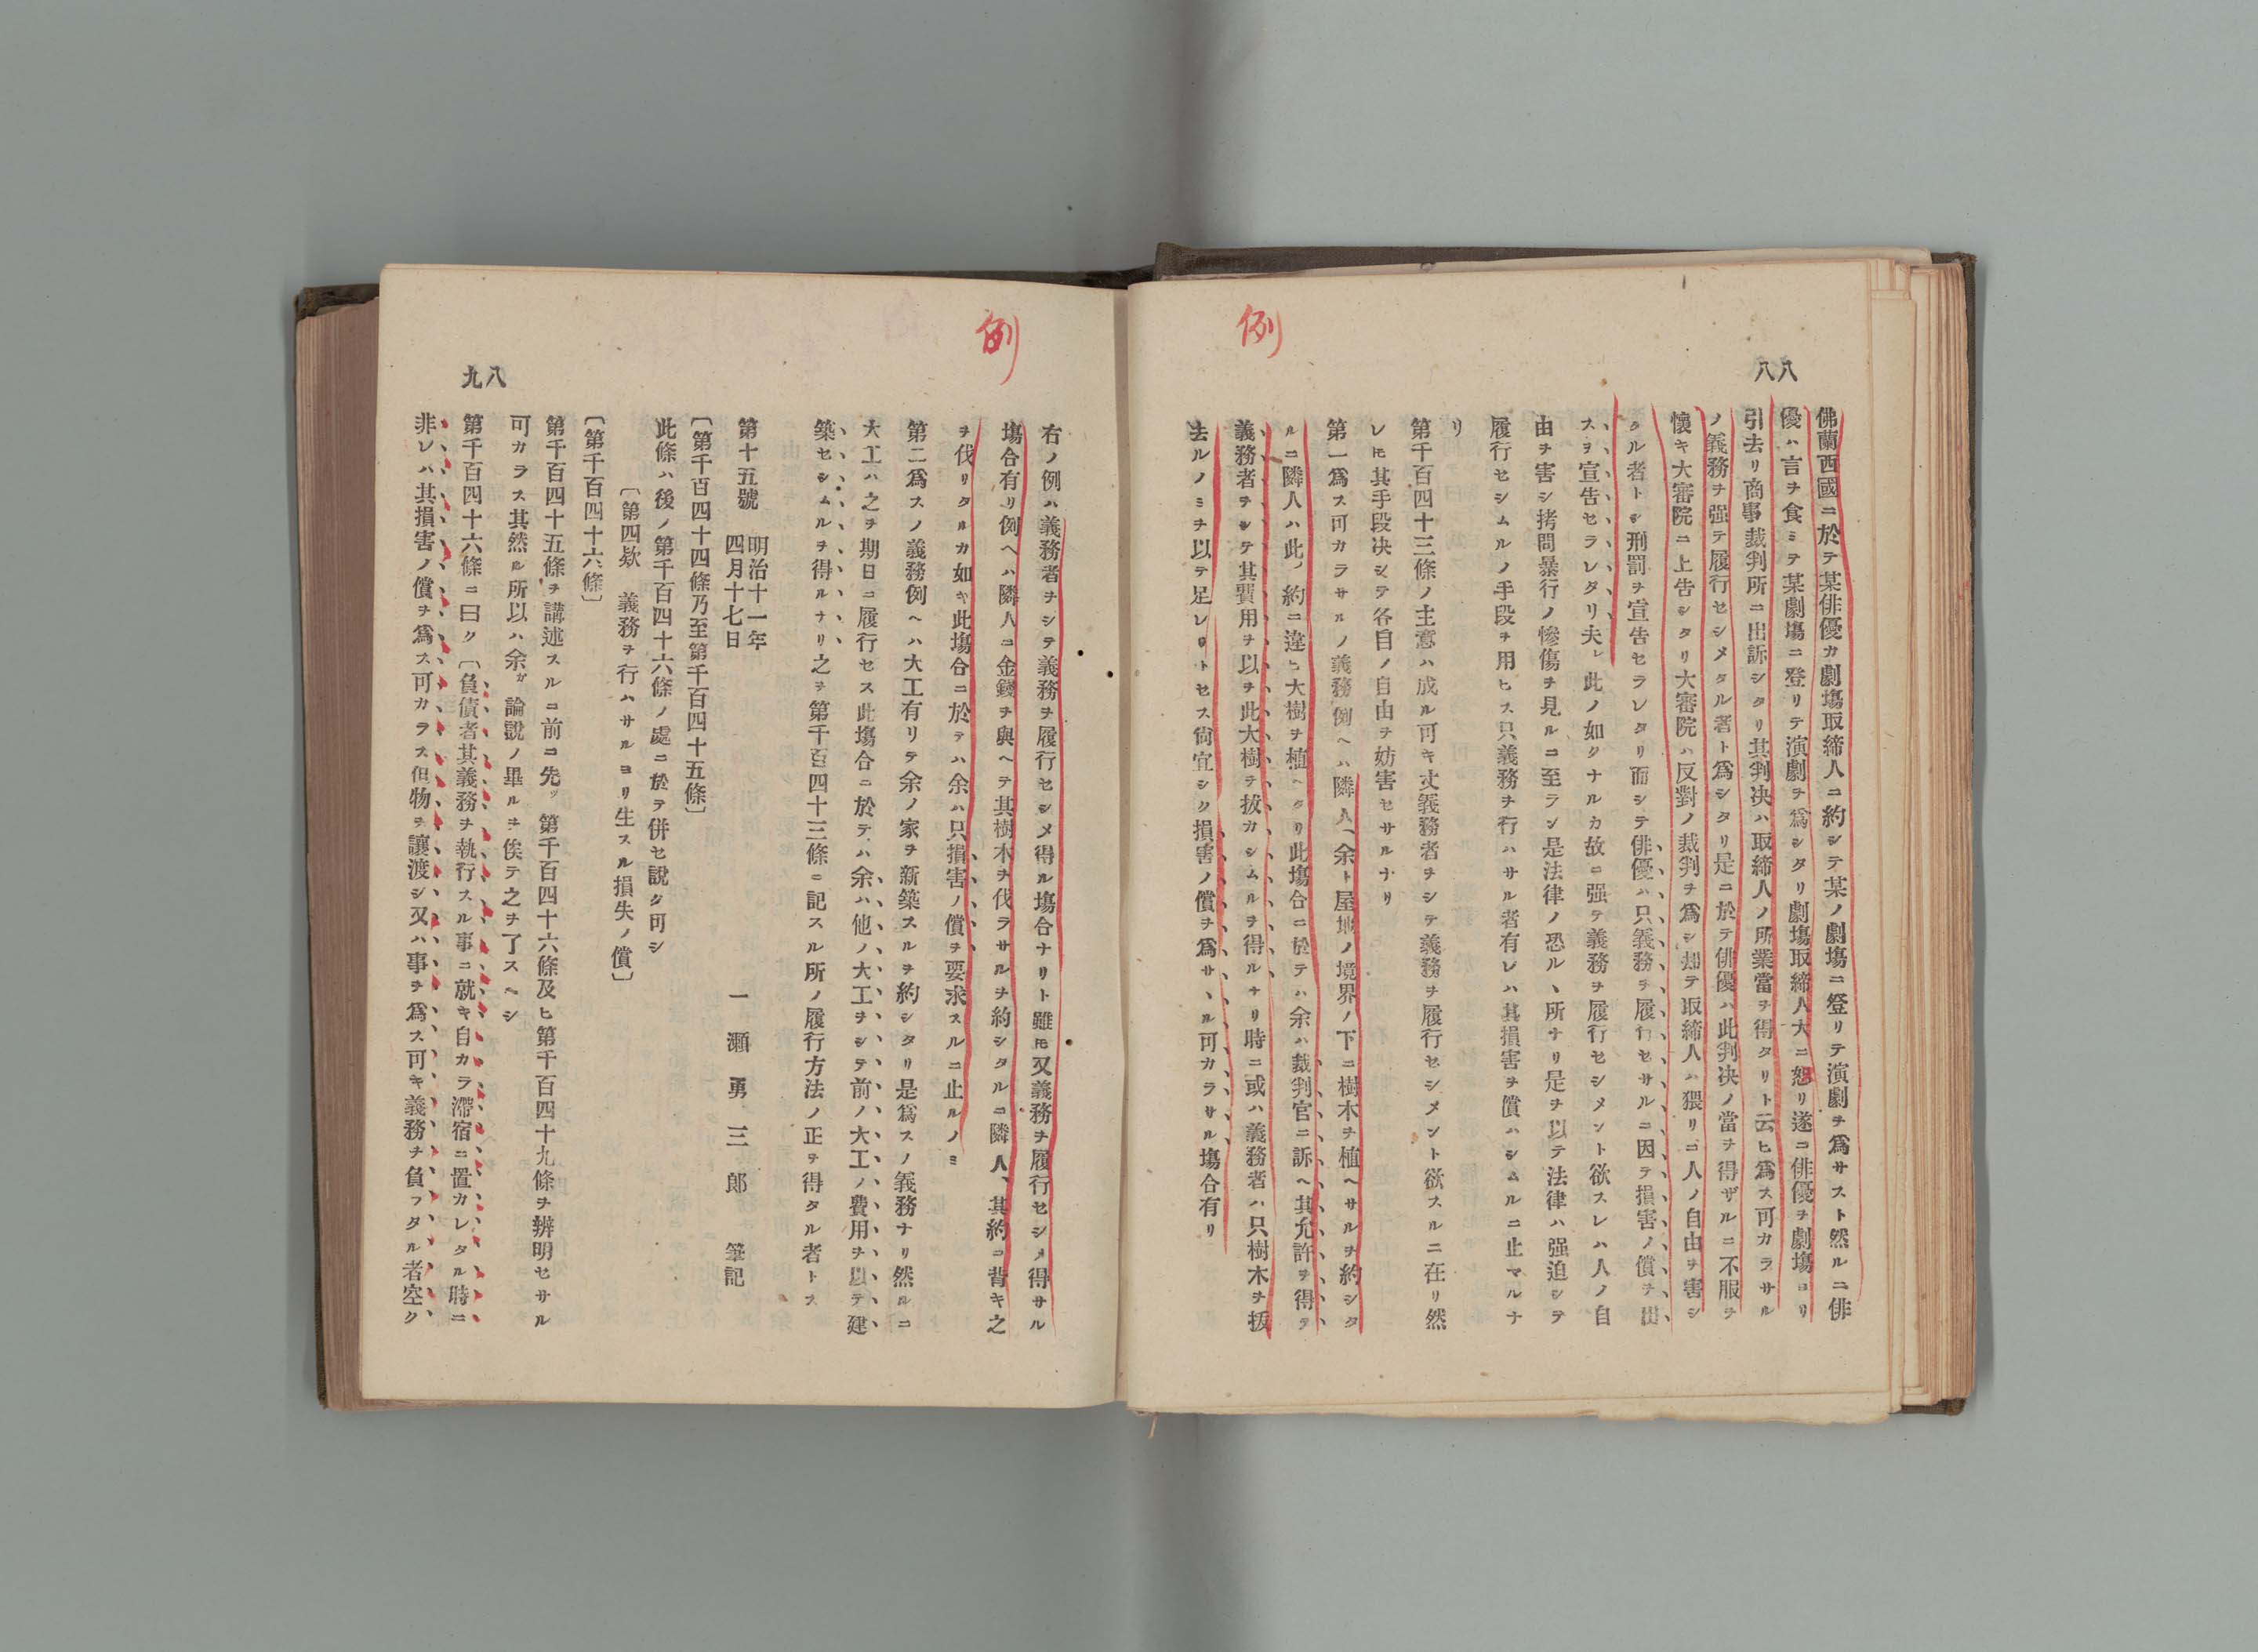 例
八八
佛蘭西國ニ於テ某俳優カ劇塲取締人ニ約シテ某ノ劇塲ニ登リテ演劇ヲ爲サスト然ルニ俳
優ハ言ヲ食ミテ某劇塲ニ登リテ演劇ヲ爲シタリ劇塲取締人大ニ怒リ遂ニ俳優ヲ劇塲ヨリ
引去リ商事裁判所ニ出訴シタリ其判决ハ取締人ノ所業當ヲ得タリト云ヒ爲ス可カラサル
ノ義務ヲ强テ履行セシメタル者ト爲シタリ是ニ於テ俳優ハ此判决ノ當ヲ得ザルニ不服ヲ
懷キ大審院ニ上告シタリ大審院ハ反對ノ裁判ヲ爲シ却テ取締人ハ猥リニ人ノ自由ヲ害シ
タル者トシ刑罰ヲ宣告セラレタリ而シテ俳優ハ只義務ヲ履行セサルニ因テ損害ノ償ヲ出
スヲ宣告セラレタリ夫レ此ノ如クナルカ故ニ强テ義務ヲ履行セシメント欲スレハ人ノ自
由ヲ害シ拷問暴行ノ慘傷ヲ見ルニ至ラン是法律ノ恐ルヽ所ナリ是ヲ以テ法律ハ强迫シテ
履行セシムルノ手段ヲ用ヒス只義務ヲ行ハサル者有レハ其損害ヲ償ハシムルニ止マルナ
リ
第千百四十三條ノ主意ハ成ル可キ丈義務者ヲシテ義務ヲ履行セシメント欲スルニ在リ然
レ𪜈其手段决シテ各自ノ自由ヲ妨害セサルナリ
第一爲ス可カラサルノ義務例ヘハ隣人、余ト屋地ノ境界ノ下ニ樹木ヲ植ヘサルヲ約シタ
ルニ隣人ハ此ノ約ニ違ヒ大樹ヲ植ヘタリ此塲合ニ於テハ余ハ裁判官ニ訴ヘ其允許ヲ得テ
義務者ヲシテ其費用ヲ以テ此大樹ヲ拔カシムルヲ得ルナリ時ニ或ハ義務者ハ只樹木ヲ拔
去ルノミヲ以テ足レリトセス尙宜シク損害ノ償ヲ爲サヽル可カラサル塲合有リ
例
右ノ例ハ義務者ヲシテ義務ヲ履行セシメ得ル塲合ナリト雖𪜈又義務ヲ履行セシメ得サル
塲合有リ例ヘハ隣人ニ金錢ヲ與ヘテ其樹木ヲ伐ラサルヲ約シタルニ隣人、其約ニ背キ之
ヲ伐リタルカ如キ此塲合ニ於テハ余ハ只損害ノ償ヲ要求スルニ止ルノミ
第二爲スノ義務例ヘハ大工有リテ余ノ家ヲ新築スルヲ約シタリ是爲スノ義務ナリ然ルニ
大工ハ之ヲ期日ニ履行セス此塲合ニ於テハ余ハ他ノ大工ヲシテ前ノ大工ノ費用ヲ以テ建
築セシムルヲ得ルナリ之ヲ第千百四十三條ニ記スル所ノ履行方法ノ正ヲ得タル者トス
第十五號 明治十一年四月十七日 一瀬勇三郎 筆記
〔第千百四十四條乃至第千百四十五條〕
此條ハ後ノ第千百四十六條ノ處ニ於テ併セ說ク可シ
〔第四欵 義務ヲ行ハサルヨリ生スル損失ノ償〕
〔第千百四十六條〕
第千百四十五條ヲ講述スルニ前ニ先ツ第千百四十六條及ヒ第千百四十九條ヲ辨明セサル
可カラス其然ル所以ハ余カ論說ノ畢ルヲ俟テ之ヲ了スヘシ
第千百四十六條ニ曰ク〔負債者其義務ヲ執行スル事ニ就キ自カラ滯宿ニ置カレタル時ニ
非レハ其損害ノ償ヲ爲ス可カラス但物ヲ讓渡シ又ハ事ヲ爲ス可キ義務ヲ負フタル者空ク
八九